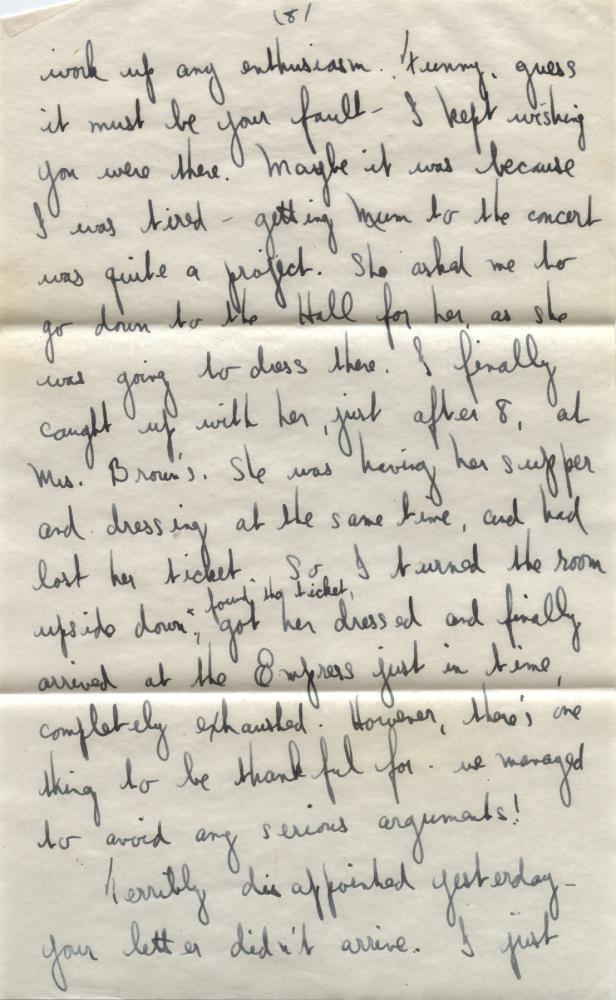 (8)
work up any enthusiasm. Funny, guess
it must be your fault - I kept wishing
you were there. Maybe it was because
I was tired - getting Mum to the concert
was quite a project. She asked me to
go down to the Hall for her, as she
was going to dress there. I finally
caught up with her, just after 8, at
Mrs. Brown's. She was having her supper
and dressing at the same time, and had
lost her ticket. So I turned the room
found the ticket,
upside down, got her dressed and finally
arrived at the Empress just in time,
completely exhausted. However, there's one
thing to be thankful for - we managed
to avoid any serious arguments!
Terribly disappointed yesterday -
your letter didn't arrive. I just